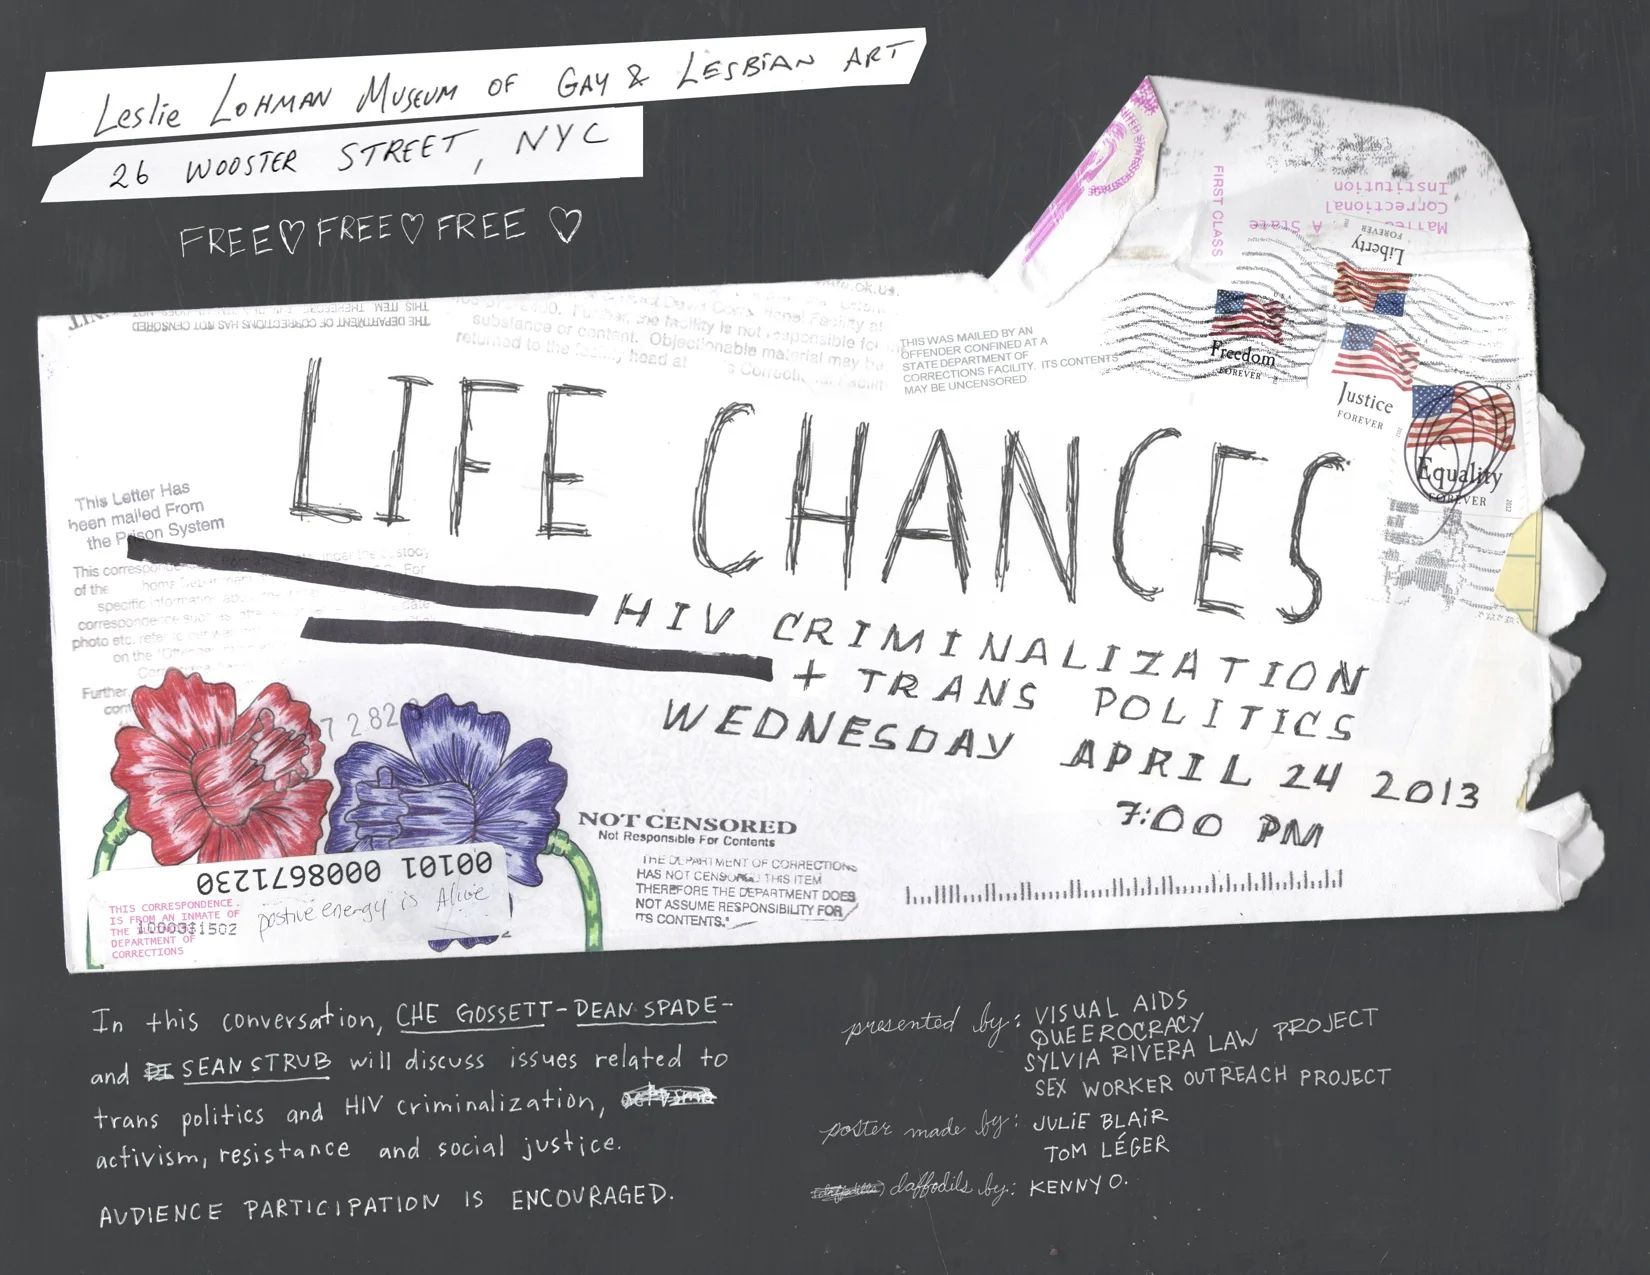 Leslie Lohman Museum of Gay & Lesbian Art
26 Wooster Street, NYC
FREE♡FREE♡FREE ♡
FIRST CLASS
Correctional
Institution
Liberty
FOREVER
Freedom
FOREVER
Justice
FOREVER
Equality
FOREVER
THE DEPARTMENT OF CORRECTIONS HAS NOT CENSORED
THIS ITEM THEREFORE
Further, the facility is not responsible for
substance or content. Objectionable material may be
returned to the facility head at
THIS WAS MAILED BY AN
OFFENDER CONFINED AT A
STATE DEPARTMENT OF
CORRECTIONS FACILITY. ITS CONTENTS
MAY BE UNCENSORED.
LIFE CHANCES
This Letter Has
been mailed From
the Prison System
HIV CRIMINALIZATION
+ TRANS POLITICS
WEDNESDAY APRIL 24 2013
7:00 PM
NOT CENSORED
Not Responsible For Contents
THE DEPARTMENT OF CORRECTIONS
HAS NOT CENSORED THIS ITEM
THEREFORE THE DEPARTMENT DOES
NOT ASSUME RESPONSIBILITY FOR
ITS CONTENTS."
00101 0008671230
THIS CORRESPONDENCE
IS FROM AN INMATE OF
THE
DEPARTMENT OF
CORRECTIONS
postive energy is Alive
In this conversation, CHE GOSSETT-DEAN SPADE-
and SEAN STRUB will discuss issues related to
trans politics and HIV criminalization,
activism, resistance and social justice.
AUDIENCE PARTICIPATION IS ENCOURAGED.
presented by: VISUAL AIDS
QUEEROCRACY
SYLVIA RIVERA LAW PROJECT
SEX WORKER OUTREACH PROJECT
poster made by: JULIE BLAIR
TOM LÉGER
daffodils by: KENNY O.